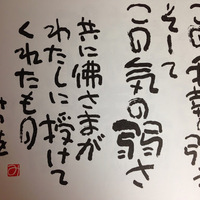 弱さ
そして
この気の弱さ
共に佛さまが
わたしに授けて
くれたもの